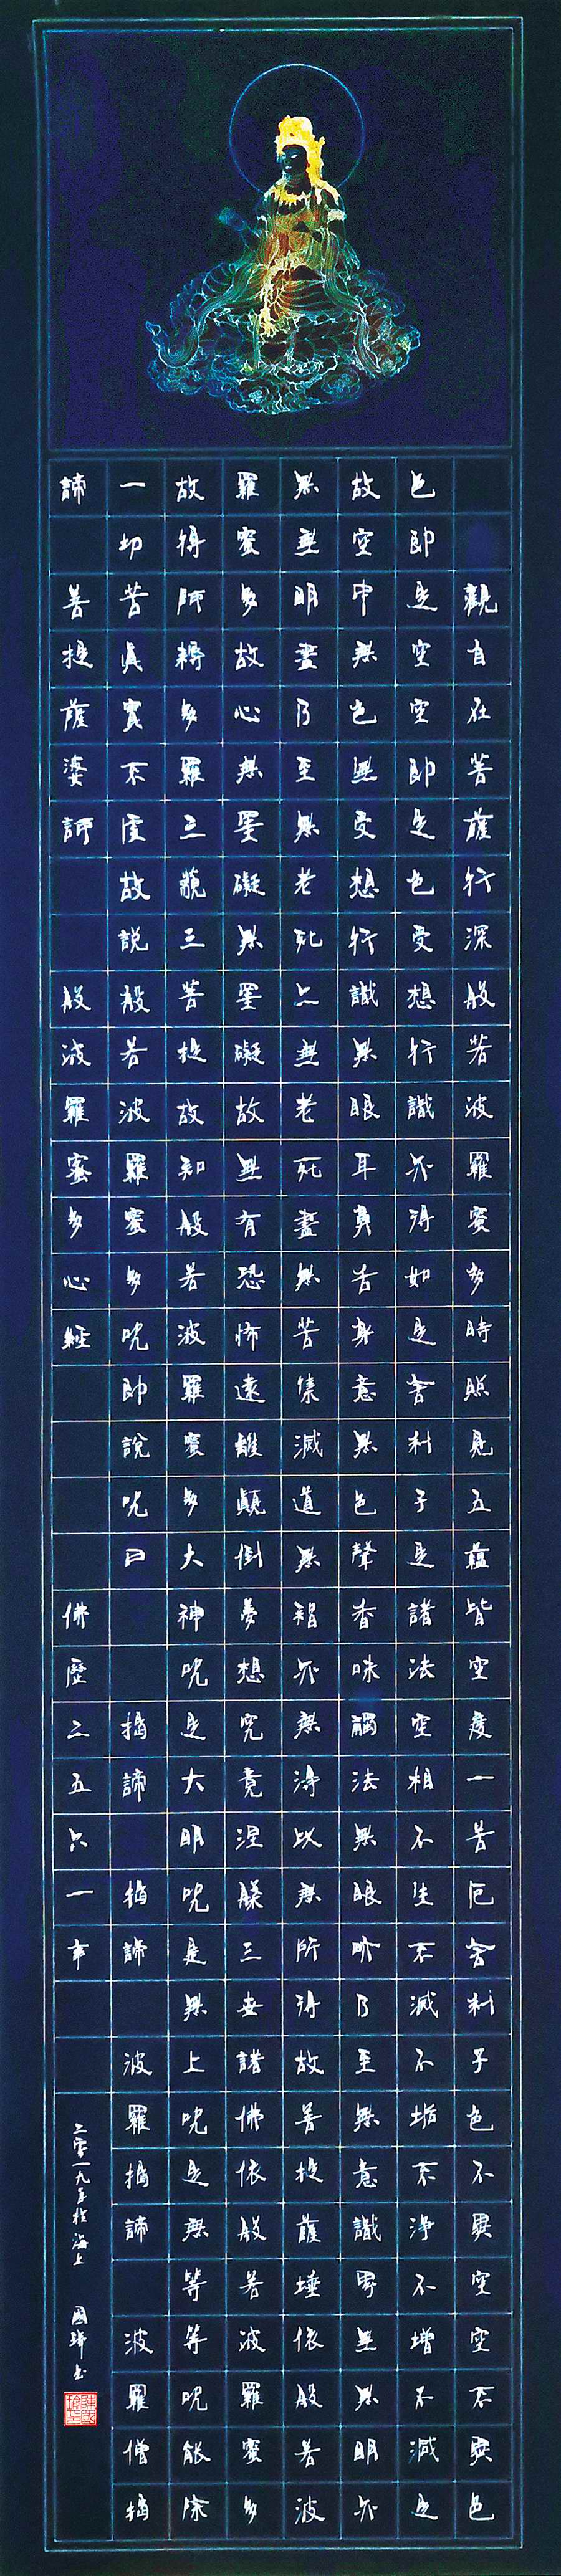 觀自在菩薩行深般若波羅蜜多時照見五蘊皆空度一苦厄舍利子色不異空空不異色
色即是空空即是色受想行識亦得如是舍利子是諸法空相不生不滅不垢不淨不增不減是
故空中無色無受想行識無眼耳鼻舌身意無色聲香味觸法無眼界乃至無意識界無無明亦
無無明盡乃至無老死亦無老死盡無苦集滅道無智亦無得以無所得故菩提薩埵依般若波
羅蜜多故心無罣礙無罣礙故無有恐怖遠離顛倒夢想究竟涅槃三世諸佛依般若波羅蜜多
故得阿耨多羅三藐三菩提故知般若波羅蜜多大神咒是大明咒是無上咒是無等等咒能除
一切苦真實不虛故說般若波羅蜜多咒即說咒曰 揭諦 揭諦 波羅揭諦 波羅僧揭
諦 菩提薩婆訶 般波羅蜜多心經 佛歷二五六一年
二零一九年於海上 國書